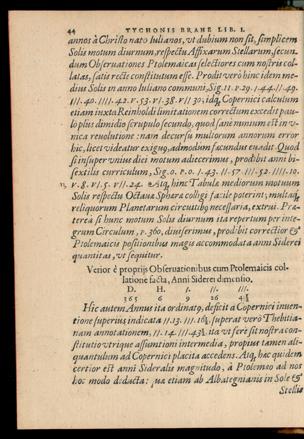 44 TYCHONIS BRAHE LIB. I.
annos à Christo nato Iulianos, vt dubium non sit, simplicem
Solis motum diurnum, respectu Affixarum Stellarum, secun-
dum Obseruationes Ptolemaicas selectiores cum nostris col-
latas, satis recte constitutum esse. Prodit verò hinc idem me-
dius Solis in anno Iuliano communi, Sig. 11. 29. 1. 44. 11. 49.
111. 40. 1111. 42. V. 53. VI. 38. VII 30, idq, Copernici calculum
etiam iuxta Reinholdi limitationem correctum excedit pau-
lo plus dimidio scrupulo secundo, quod sanè minimum est in v-
nica reuolutione: nam decursu multorum annorum error
hic, licet videatur exiguus, admodum facundus euadit. Quod
si insuper vnius diei motum adiecerimus, prodibit anni bi-
sextilis curriculum, Sig. 0. P. 0. 1. 43. 11. 57. 111. 52. 1111. 10.
V. 8. VI. 5. VII. 24. Atq, hinc Tabulæ mediorum motuum
Solis respectu Octauæ Sphæræ colligi facile poterint; multaq,
reliquorum Planetarum circuitibus necessaria, extrui. Præ-
terea si hunc motum Solis diurnum ita repertum per inte-
grum Circulum, P. 360, diuiserimus, prodibit correctior &
Ptolemaicis positionibus magis accommodata anni Siderei
quantitas, vt sequitur.
Verior è proprijs Obseruationibus cum Ptolemaicis col-
latione facta, Anni Siderei dimensio.
D. H. I. II. III.
365 6 9 26 43½
Hic autem Annus ita ordinatus, deficit à Copernici inuen-
tione superius indicata 11. 13. 111. 16½, superat verò Thebitia-
nam annotationem, 11. 14. 111. 43½. ita vt ferè sit nostra con-
stitutio vtriusque assumtioni intermedia, propius tamen ali-
quantulum ad Copernici placita accedens. Atq, hac quidem
certior est anni Sideralis magnitudo, à Ptolemæo ad nos
hoc modo didacta: quæ etiam ab Albategnianis in Sole &
Stellis